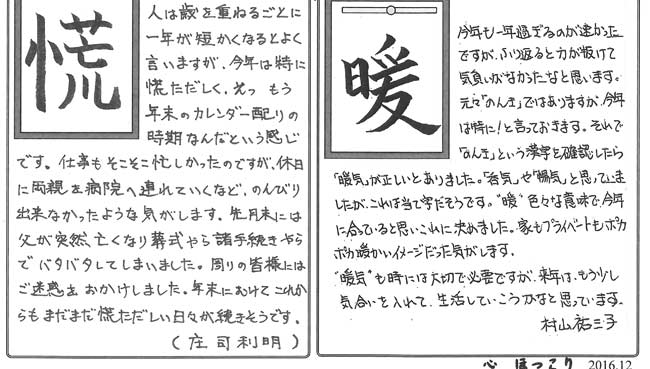 慌
人は歳を重ねるごとに
一年が短かくなるとよく
言いますが、今年は特に
慌ただしく、えっ もう
年末のカレンダー配りの
時期なんだという感じ
です。仕事もそこそこ忙しかったのですが、休日
に両親を病院へ連れていくなど、のんびり
出来なかったような気がします。先月末には
父が突然、亡くなり葬式やら諸手続きやら
でバタバタしてしまいました。周りの皆様には
ご迷惑をおかけしました。年末にかけてこれか
らもまだまだ慌ただしい日々が続きそうです。
(庄司利明)
暖
今年も一年過ぎるのが速かった
ですが、ふり返ると力が抜けて
気負いがなかったなと思います。
元々「のんき」ではありますが、今年
は特に!と言っておきます。それで
「のんき」という漢字を確認したら
「暖気」が正しいとありました。「呑気」や「暢気」と思っていまし
たが、これは当て字だそうです。"暖"色々な意味で、今年
に合っていると思いこれに決めました。家もプライベートもポカ
ポカ暖かいイメージだった気がします。
"暖気"も時には大切で必要ですが、来年は、もう少し
気合いを入れて、生活していこうかなと思っています。
村山祐三子
心 ほっこり 2016.12